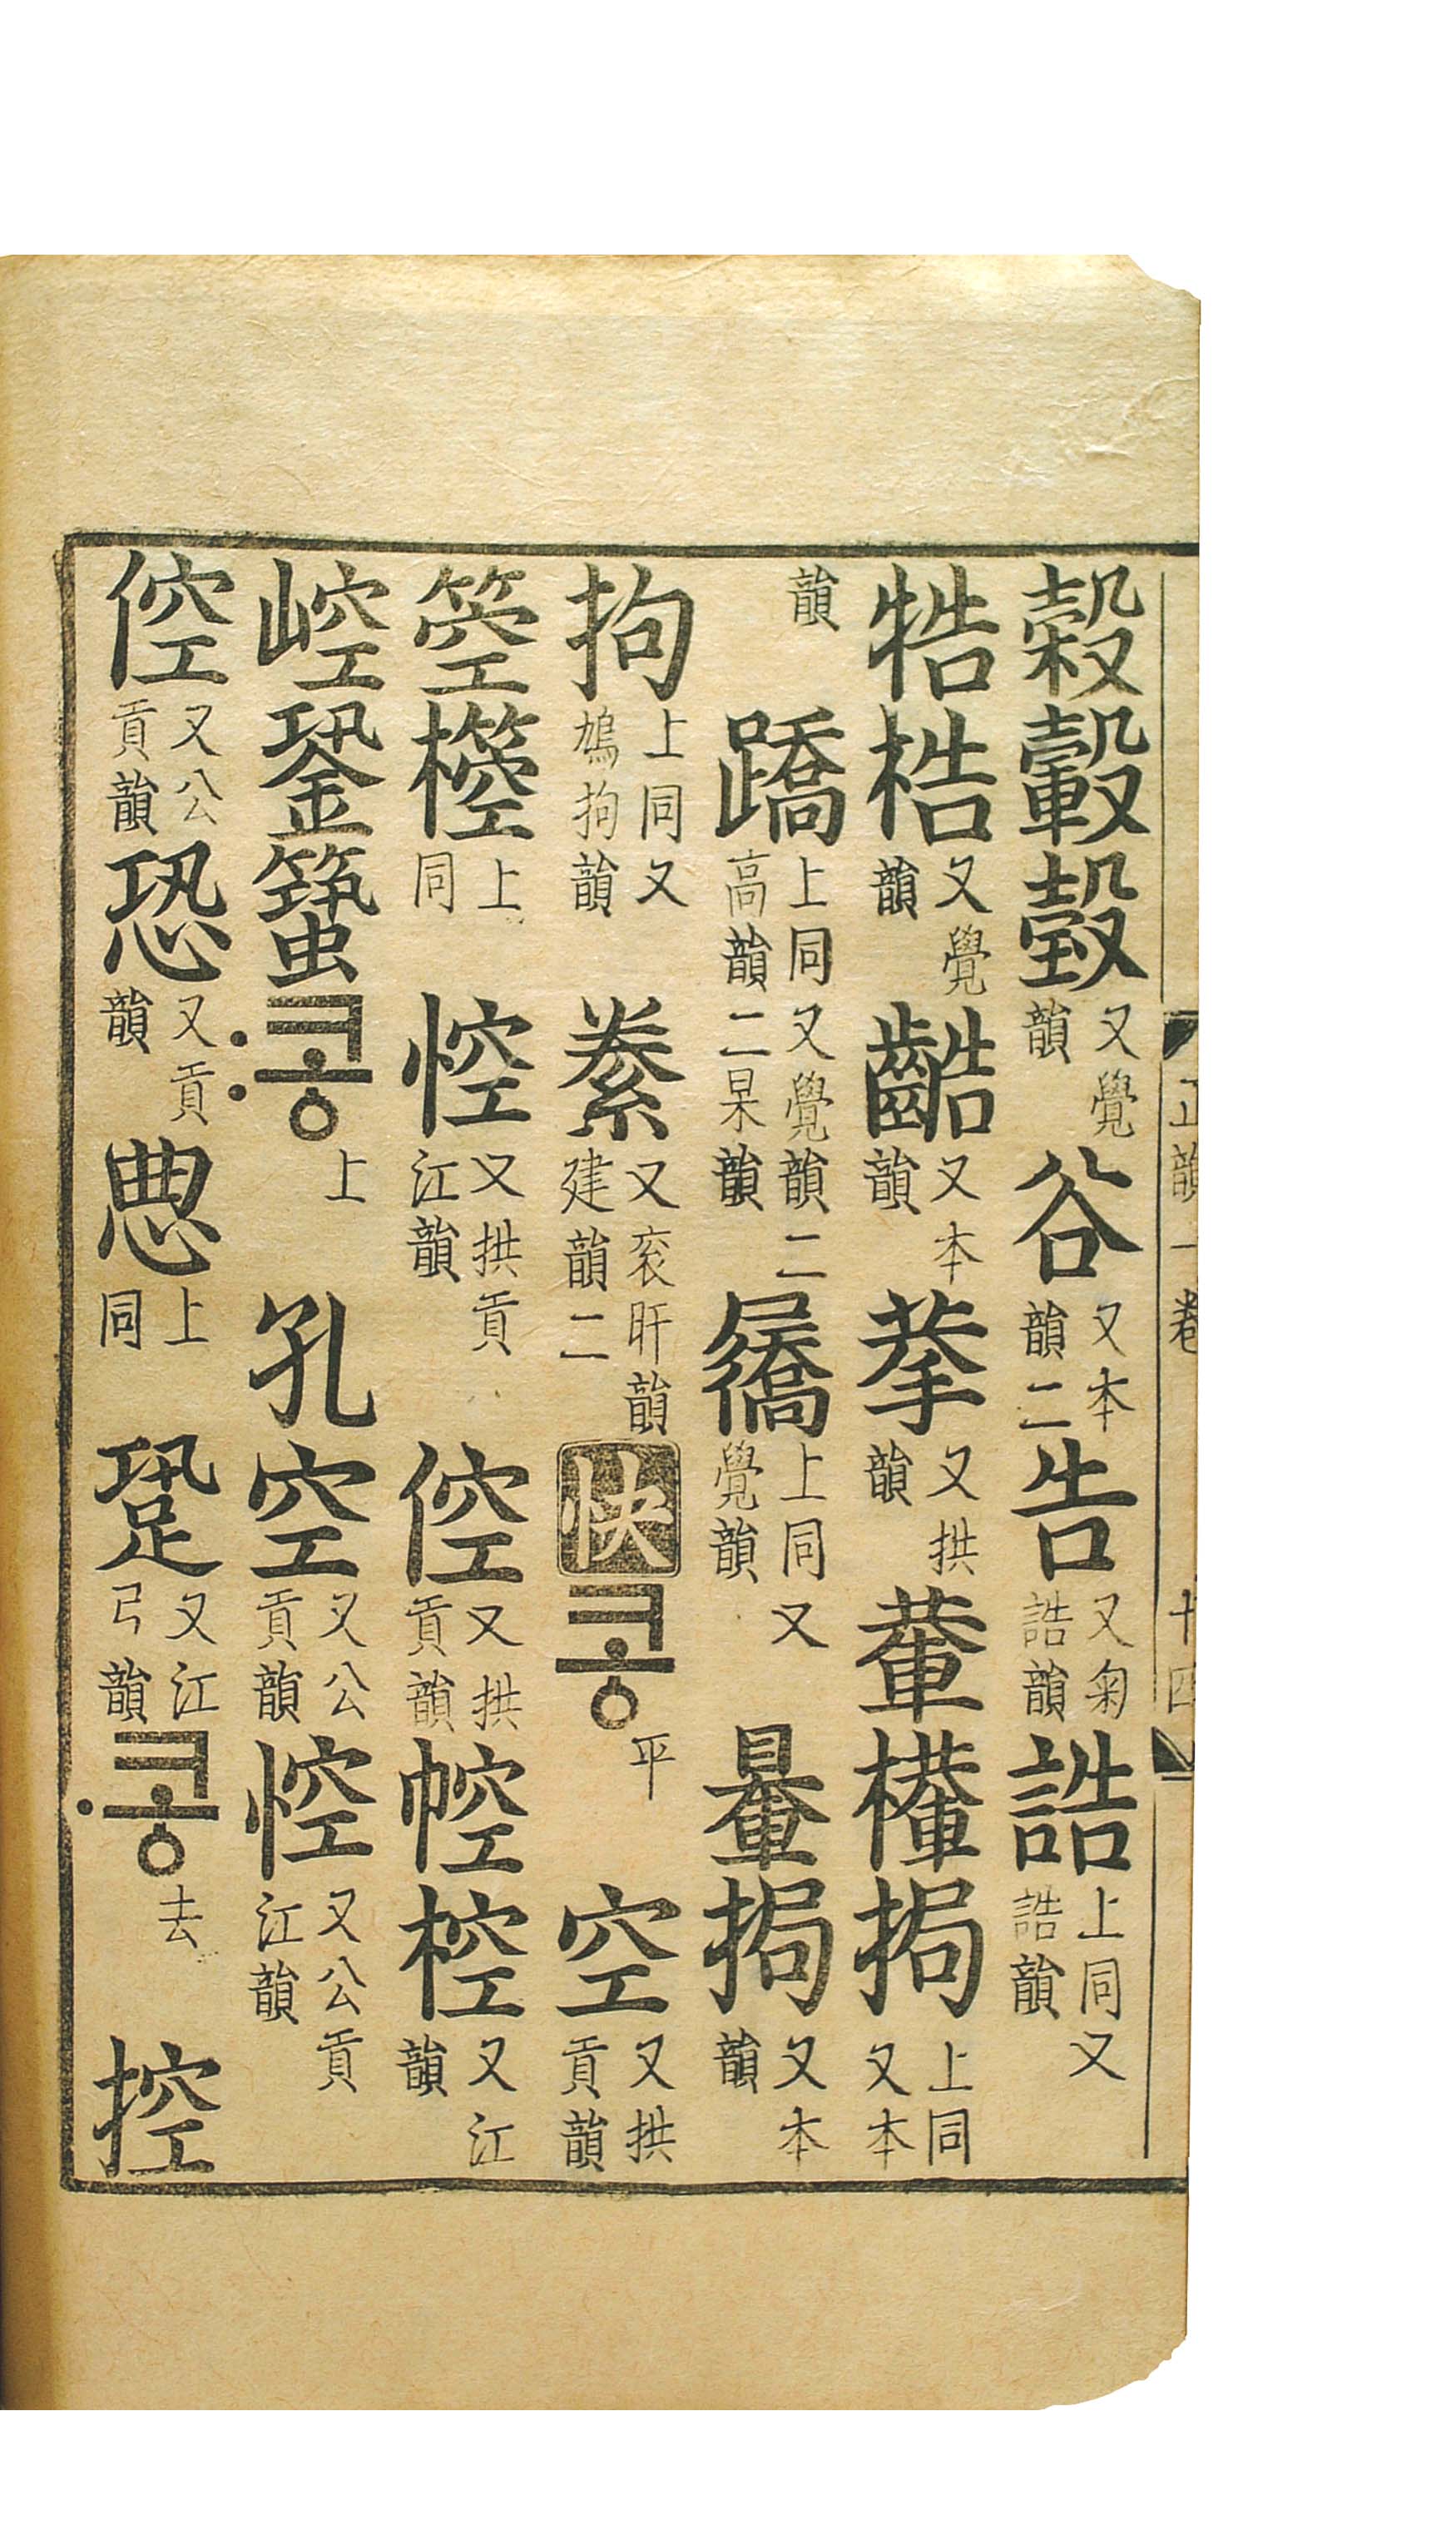 穀轂瑴又覺韻谷又本韻二告又匊誥韻誥上同又誥韻
牿梏又覺韻𪙏又本韻拲又拱韻輂㯺挶上同又本
韻蹻上同又覺韻二高韻二杲韻屩上同又覺韻暈挶又本韻
拘上同又鳩拘韻絭又衮旰韻建韻二快콩平空又拱貢韻
箜椌上同悾又拱貢江韻倥又拱貢韻㤟椌又江韻
崆銎蛩:콩上孔空又公貢韻悾又公貢江韻
倥又公貢韻恐又貢韻㤟上同跫又江弓韻·콩去控
正韻一卷 十四